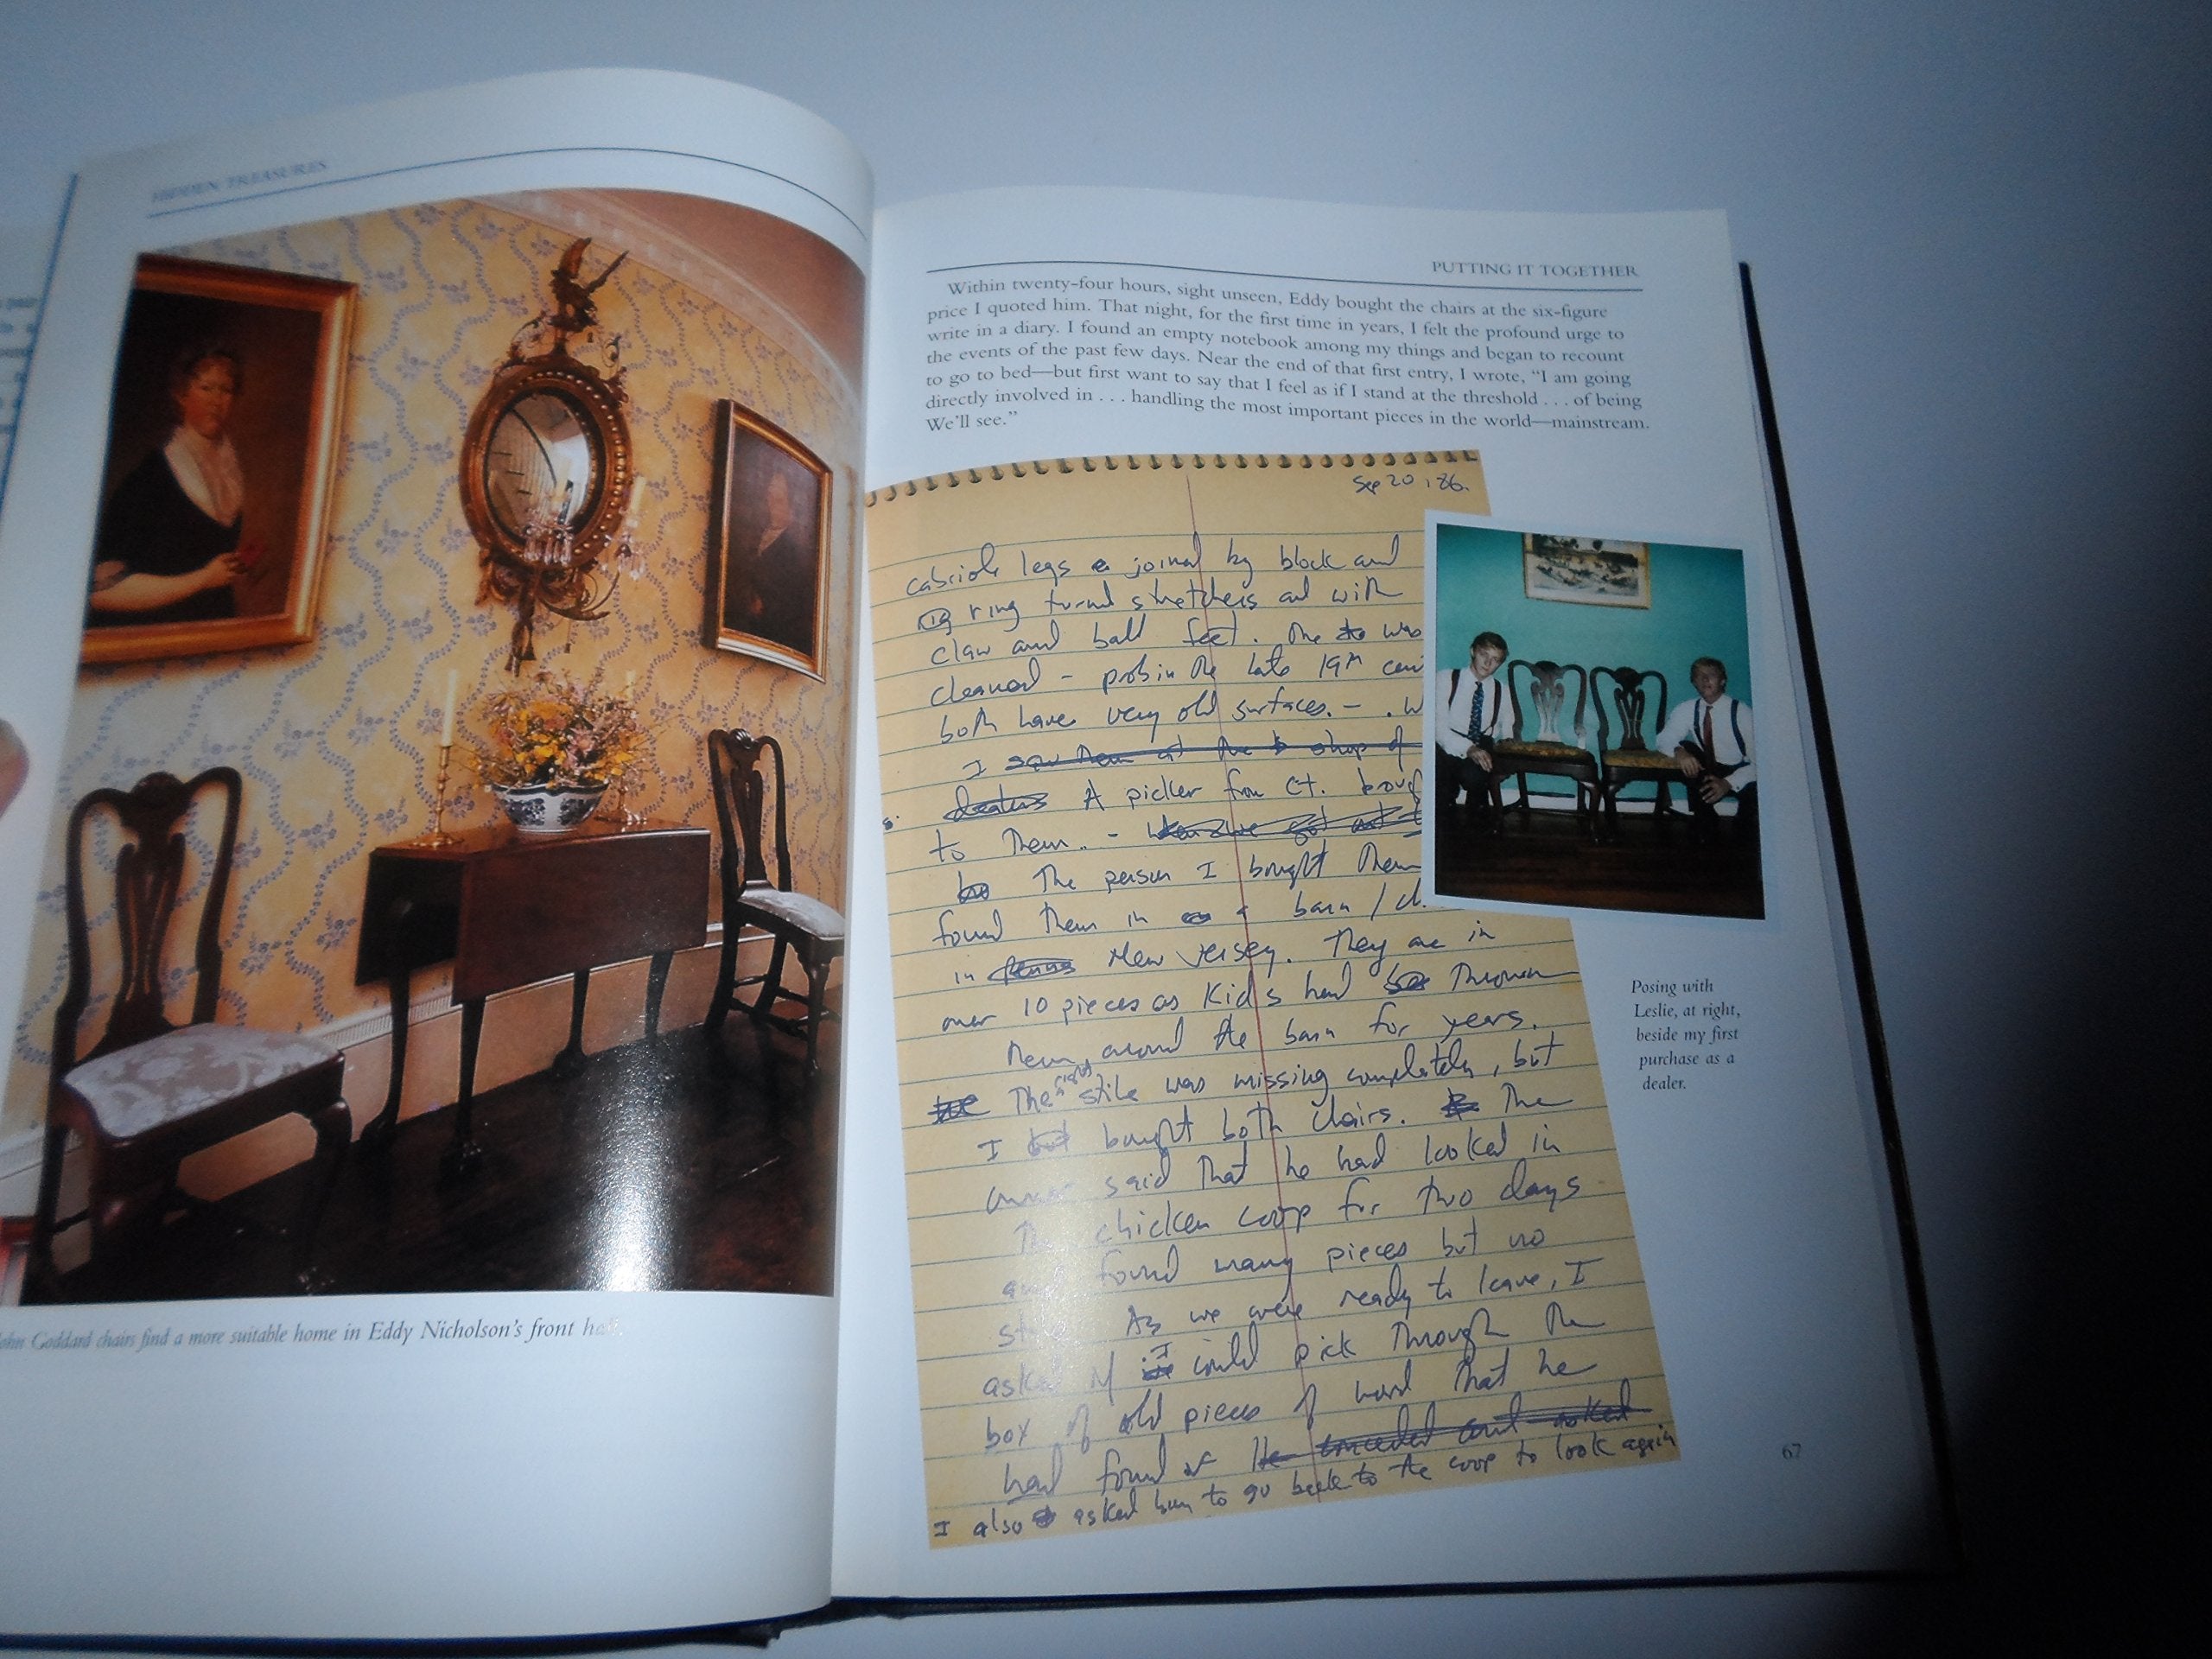 HIDDEN TREASURES
John Goddard chairs find a more suitable home in Eddy Nicholson's front hall.
PUTTING IT TOGETHER
Within twenty-four hours, sight unseen, Eddy bought the chairs at the six-figure
price I quoted him. That night, for the first time in years, I felt the profound urge to
write in a diary. I found an empty notebook among my things and began to recount
the events of the past few days. Near the end of that first entry, I wrote, "I am going
to go to bed—but first want to say that I feel as if I stand at the threshold . . . of being
directly involved in . . . handling the most important pieces in the world—mainstream.
We'll see."
Sep 20, 86.
cabriole legs joined by block and
ring turned stretchers and with
claw and ball feet. One was
cleaned - prob in the late 19th cen
both have very old surfaces. - . W
I saw them at the shop of
dealers A picker from Ct. boug
to them. -
The person I bought them
found them in a barn / ch
in New Jersey. They are in
over 10 pieces as kids had thrown
them around the barn for years.
The right stile was missing completely, but
I bought both chairs. The
owner said that he had looked in
The chicken coop for two days
and found many pieces but no
As we were ready to leave, I
asked if I could pick through the
box of old pieces of wood that he
had found He conceded and asked
I also asked him to go back to the coop to look again
Posing with
Leslie, at right,
beside my first
purchase as a
dealer.
67